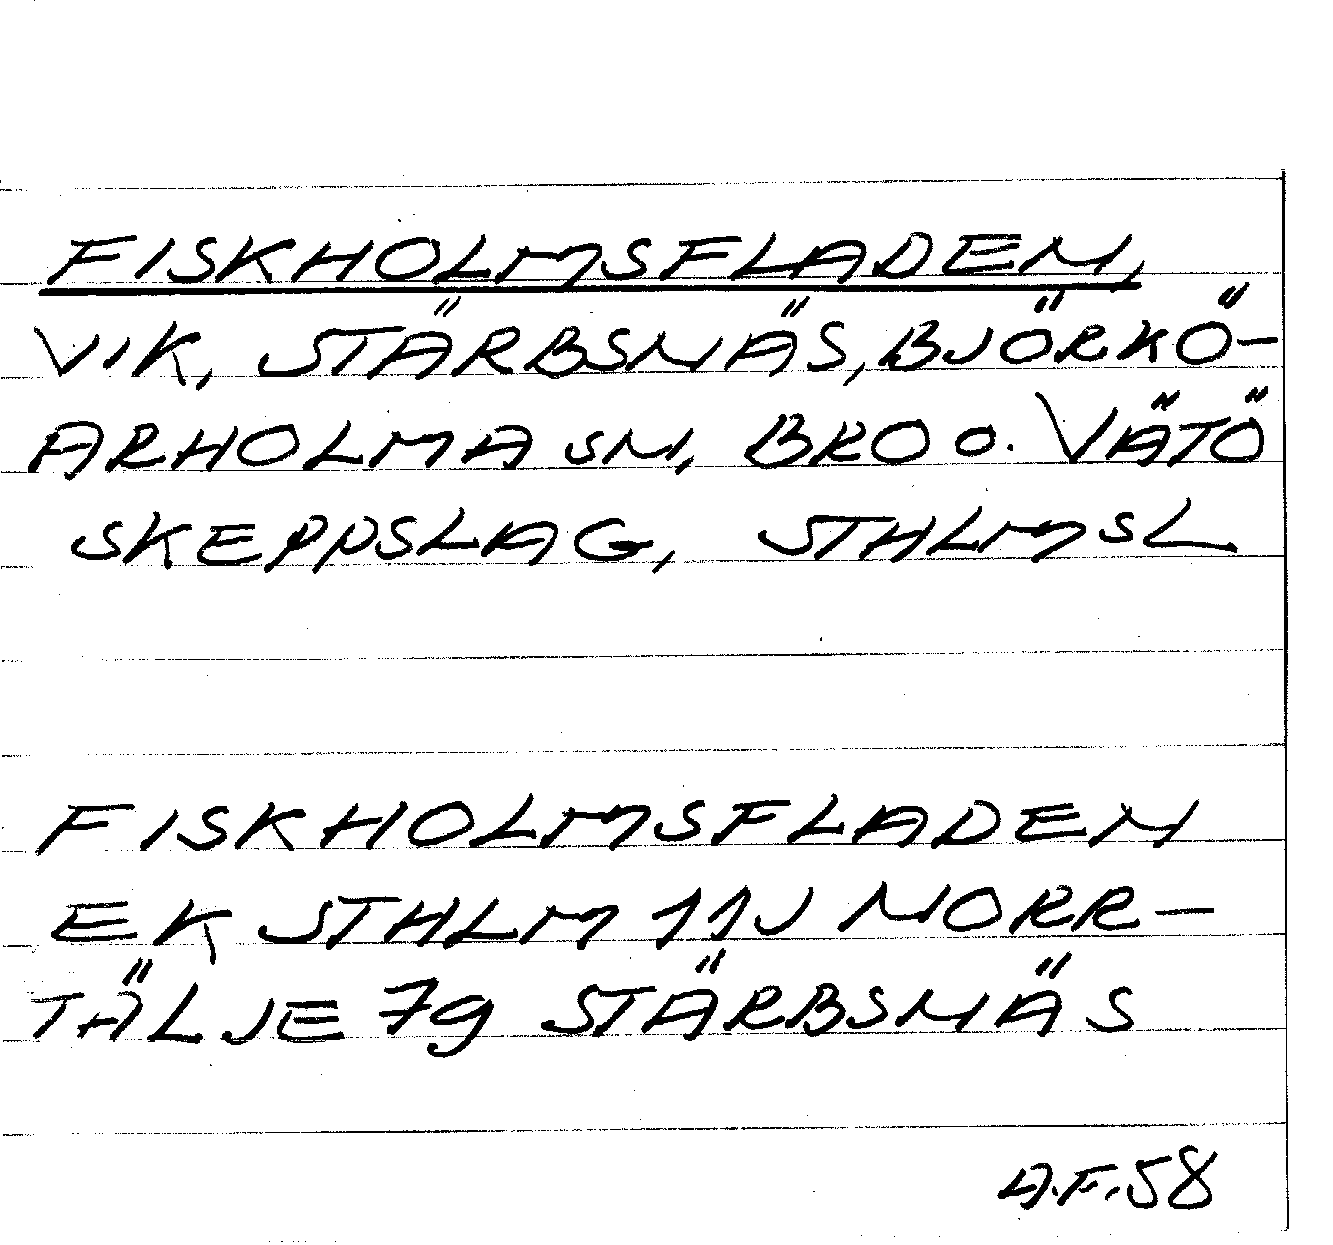 FISKHOLMSFLADEN,
VIK, STÄRBSNÄS, BJÖRKÖ-
ARHOLMA SN, BRO O. VÄTÖ
SKEPPSLAG, STHLMSL
FISKHOLMSFLADEN
EK STHLM 11J NORR-
TÄLJE 79 STÄRBSNÄS
A.F.58